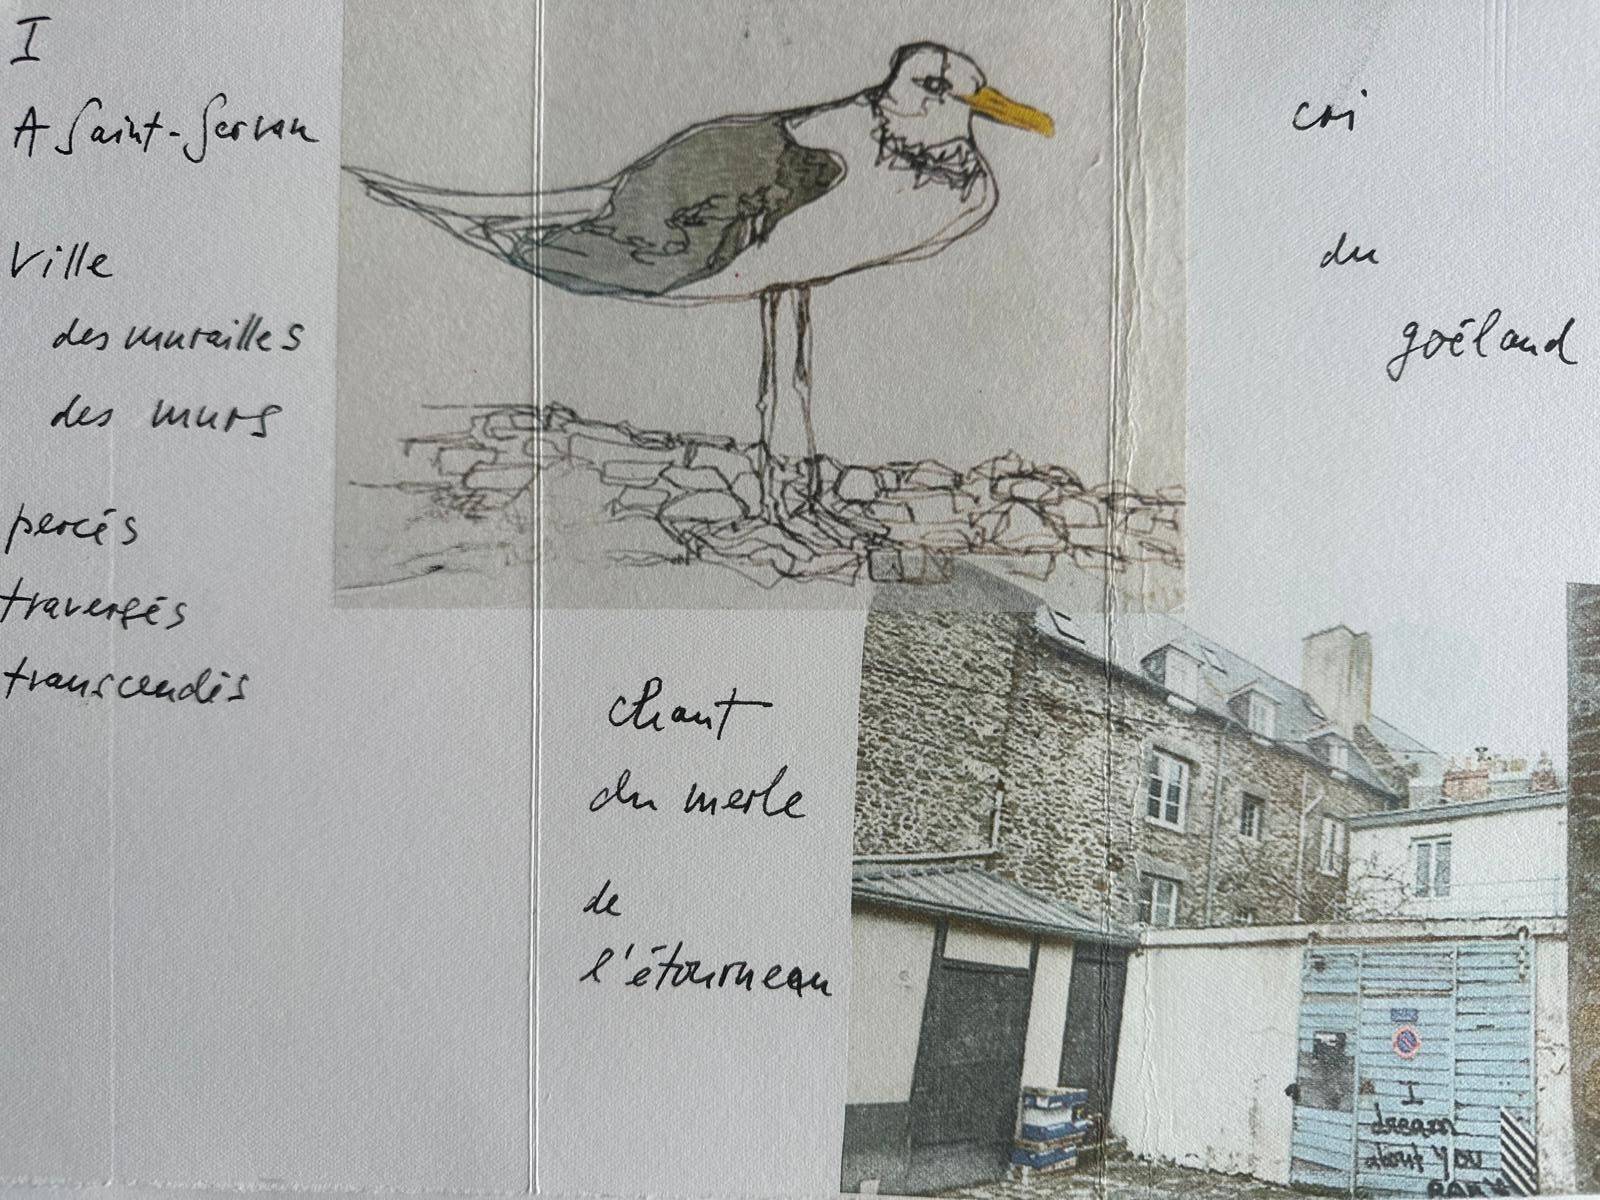 I
A Saint-Servan
Ville
des murailles
des murs
percés
traversés
transcendés
chant
du merle
de
l'étourneau
cri
du
goéland
I
dream
about you